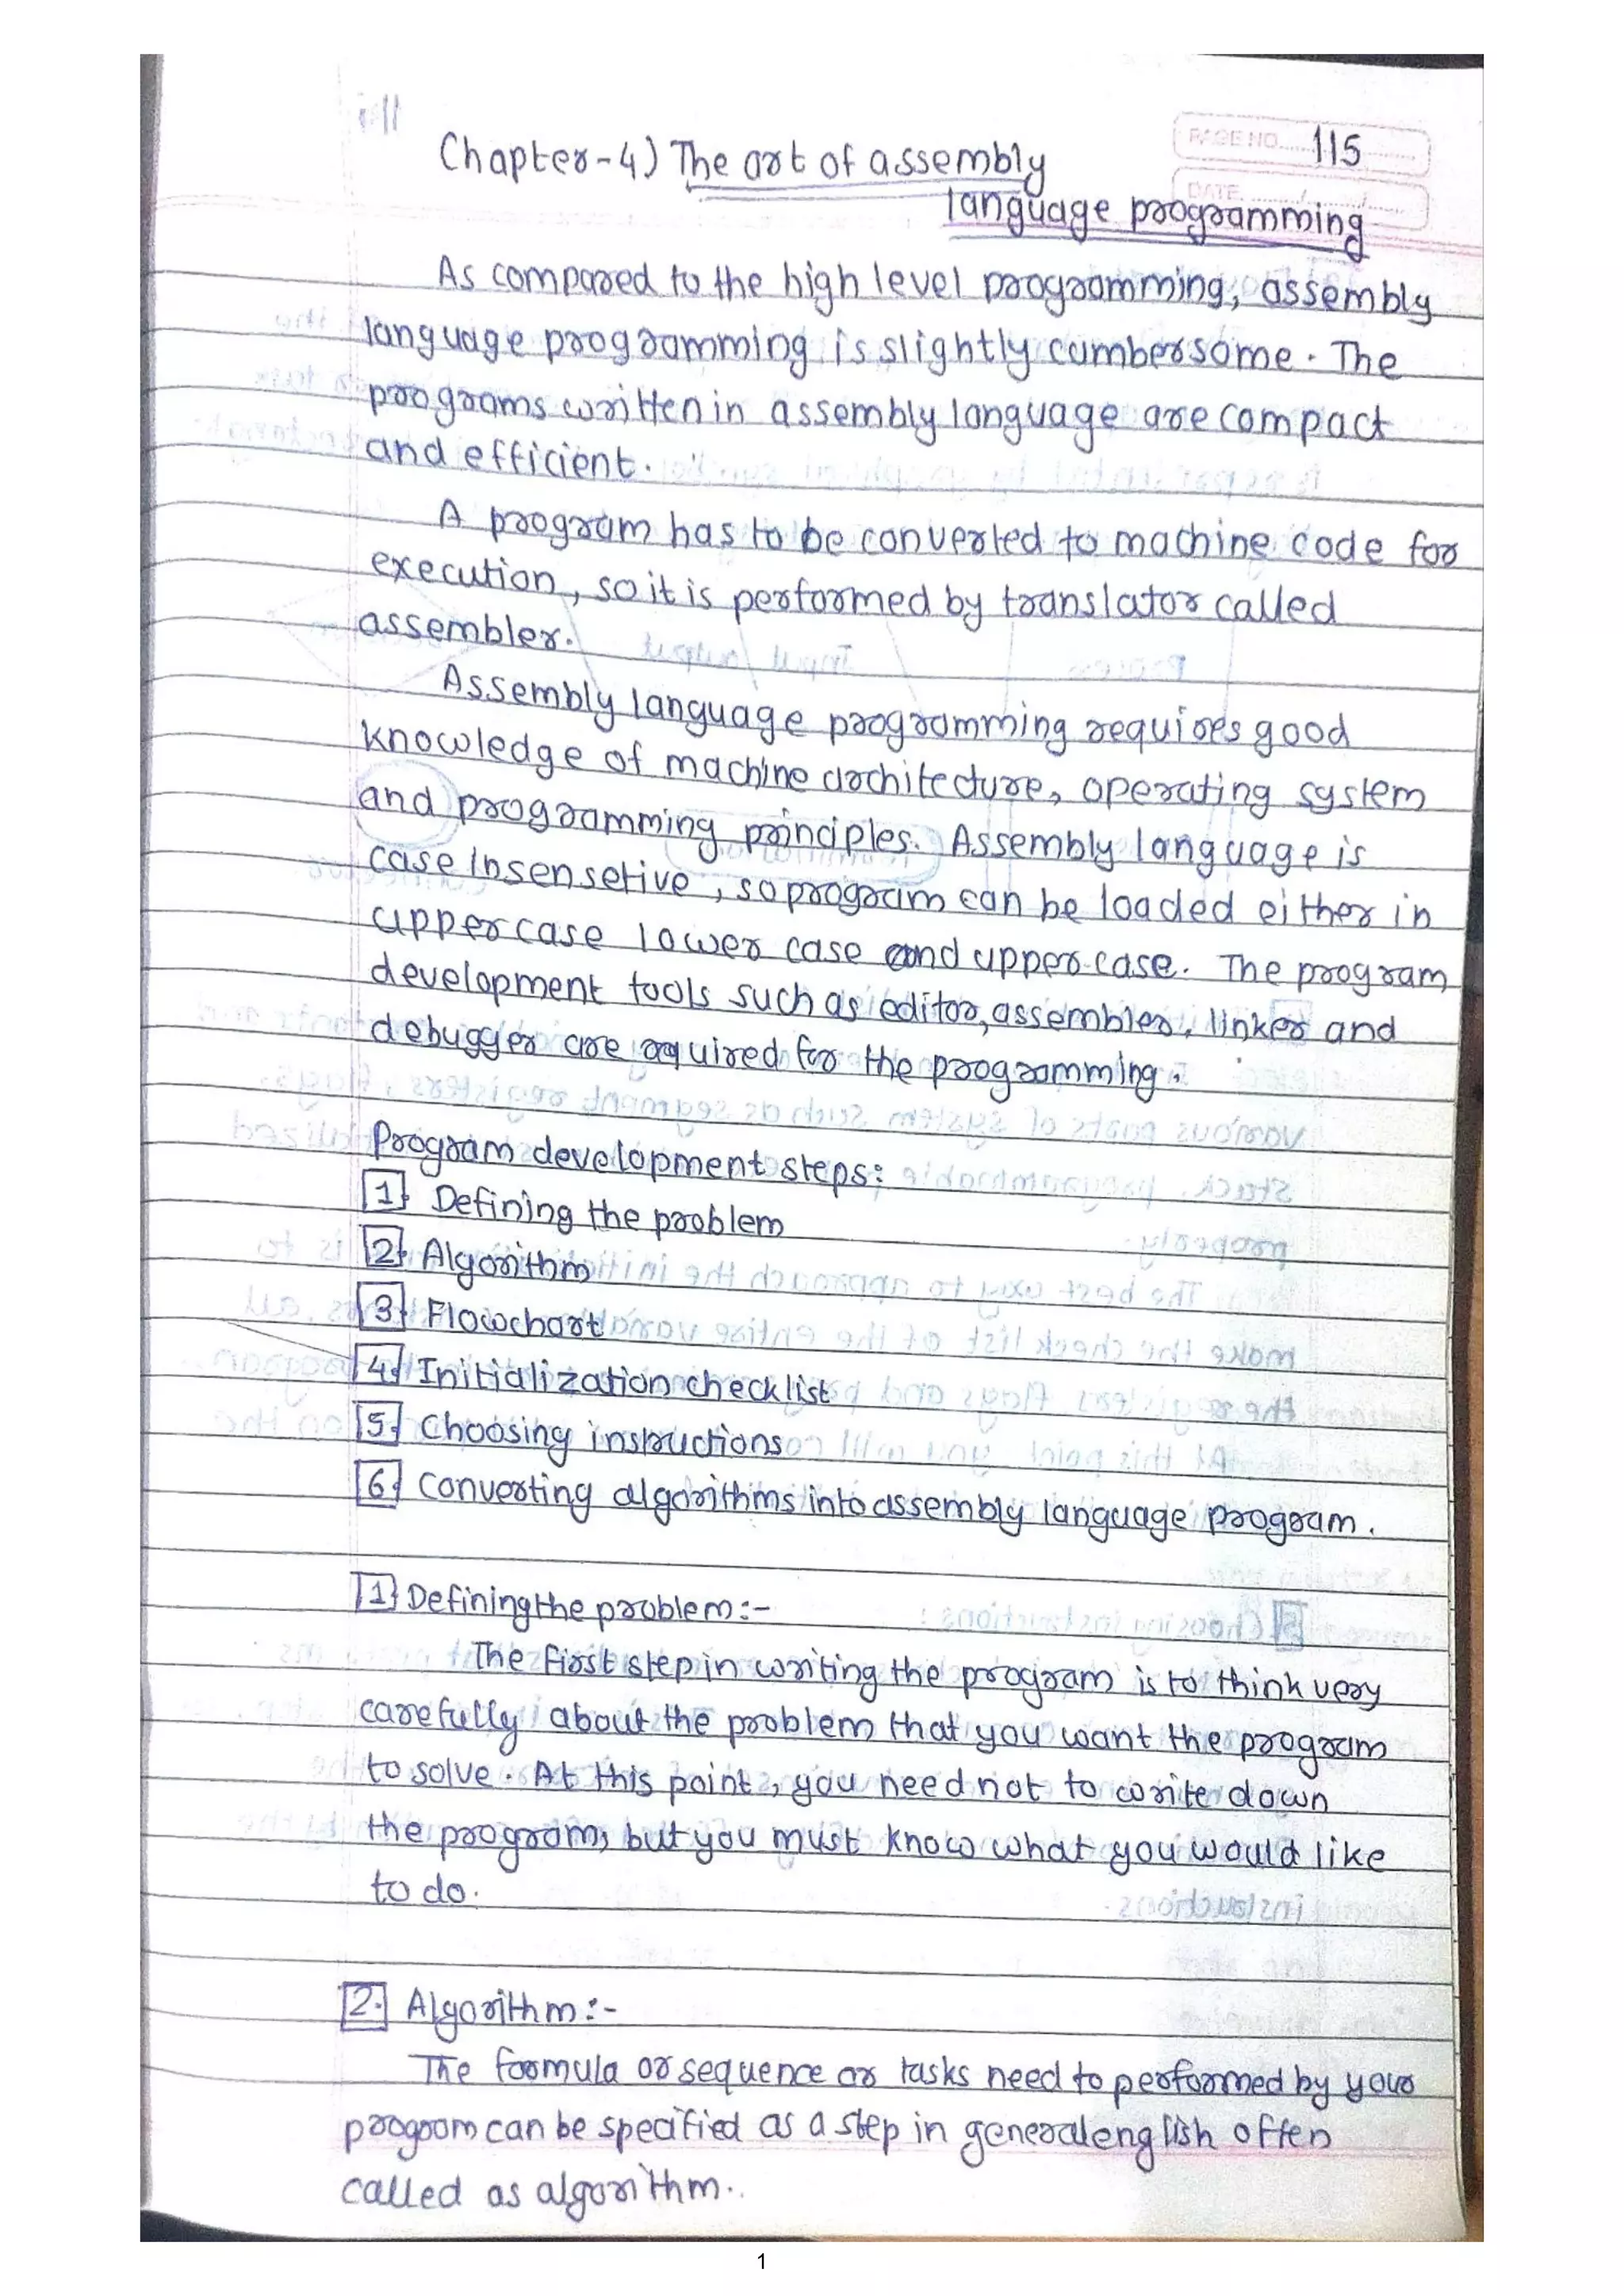 PAGE NO. 115
DATE
Chapter-4) The art of assembly
language programming
As compared to the high level programming, assembly
language programming is slightly cumbersome. The
programs written in assembly language are compact
and efficient.
A program has to be converted to machine code for
execution, so it is performed by translator called
assembler.
Assembly language programming requires good
knowledge of machine architecture, operating system
and programming principles. Assembly language is
case insensetive, so program can be loaded either in
upper case lower case and upper case. The program
development tools such as editor, assembler, linker and
debugger are required for the programming.
Program development steps:
1. Defining the problem
2. Algorithm
3. Flowchart
4. Initialization checklist
5. Choosing instructions
6. Converting algorithms into assembly language program.
1. Defining the problem:-
The first step in writing the program is to think very
carefully about the problem that you want the program
to solve. At this point, you need not to write down
the program, but you must know what you would like
to do.
2. Algorithm:-
The formula or sequence or tasks need to performed by your
program can be specified as a step in general english often
called as algorithm.
1